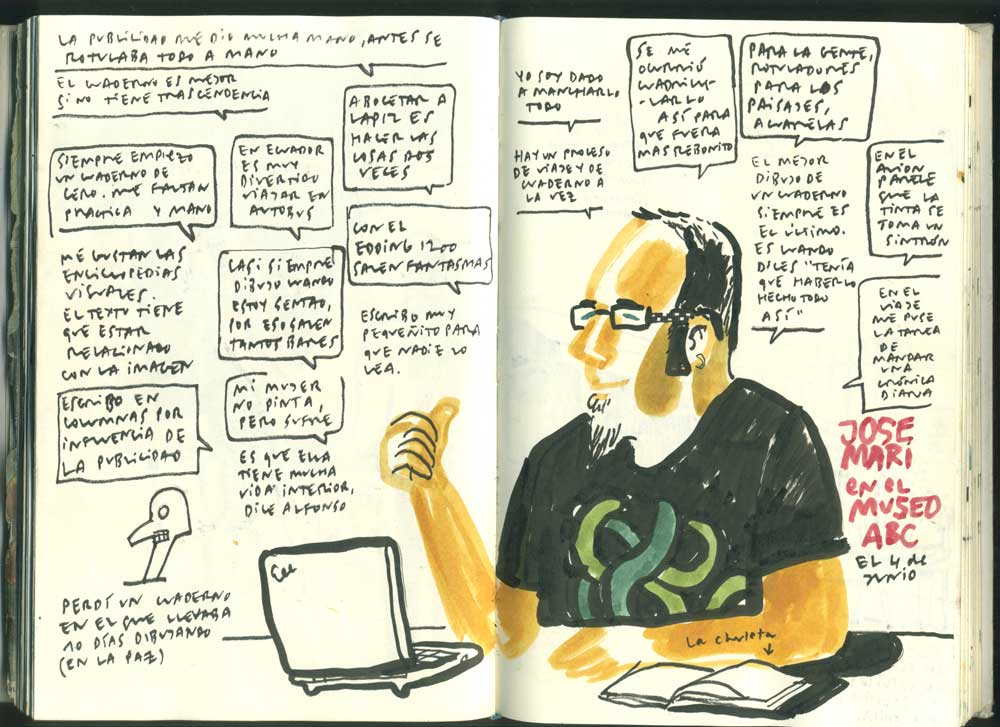 LA PUBLICIDAD ME DIO MUCHA MANO, ANTES SE
ROTULABA TODO A MANO
EL CUADERNO ES MEJOR
SI NO TIENE TRASCENDENCIA
ABOCETAR A
LAPIZ ES
HACER LAS
COSAS DOS
VECES
SIEMPRE EMPIEZO
UN CUADERNO DE
CERO. ME FALTAN
PRACTICA Y MANO
EN ECUADOR
ES MUY
DIVERTIDO
VIAJAR EN
AUTOBUS
CON EL
EDDING 1200
SALEN FANTASMAS
ME GUSTAN LAS
ENCICLOPEDIAS
VISUALES.
EL TEXTO TIENE
QUE ESTAR
RELACIONADO
CON LA IMAGEN
CASI SIEMPRE
DIBUJO CUANDO
ESTOY SENTAO,
POR ESO SALEN
TANTOS BARES
ESCRIBO MUY
PEQUEÑITO PARA
QUE NADIE LO
LEA.
ESCRIBO EN
COLUMNAS POR
INFLUENCIA DE
LA PUBLICIDAD
MI MUJER
NO PINTA,
PERO SUFRE
ES QUE ELLA
TIENE MUCHA
VIDA INTERIOR,
DICE ALFONSO
PERDÍ UN CUADERNO
EN EL QUE LLEVABA
10 DÍAS DIBUJANDO
(EN LA PAZ)
YO SOY DADO
A MANCHARLO
TODO
SE ME
OCURRIÓ
CUADRICU-
LARLO
ASÍ PARA
QUE FUERA
MAS REBONITO
PARA LA GENTE,
ROTULADORES
PARA LOS
PAISAJES,
ACUARELAS
HAY UN PROCESO
DE VIAJE Y DE
CUADERNO A
LA VEZ
EL MEJOR
DIBUJO DE
UN CUADERNO
SIEMPRE ES
EL ÚLTIMO.
ES CUANDO
DICES "TENÍA
QUE HABERLO
HECHO TODO
ASÍ"
EN EL
AVION
PARECE
QUE LA
TINTA SE
TOMA UN
SINTRÓN
EN EL
VIAJE
ME PUSE
LA TAREA
DE
MANDAR
UNA
CRÓNICA
DIARIA
JOSE
MARI
en el
MUSEO
ABC
EL 4 de
JUNIO
La chuleta